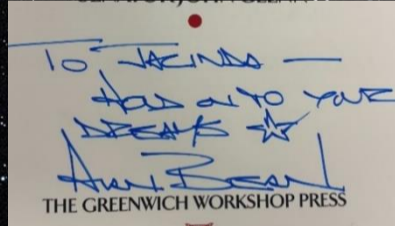 TO JACINDA —
HOLD ON TO YOUR
DREAMS ☆
ALAN BEAN
THE GREENWICH WORKSHOP PRESS